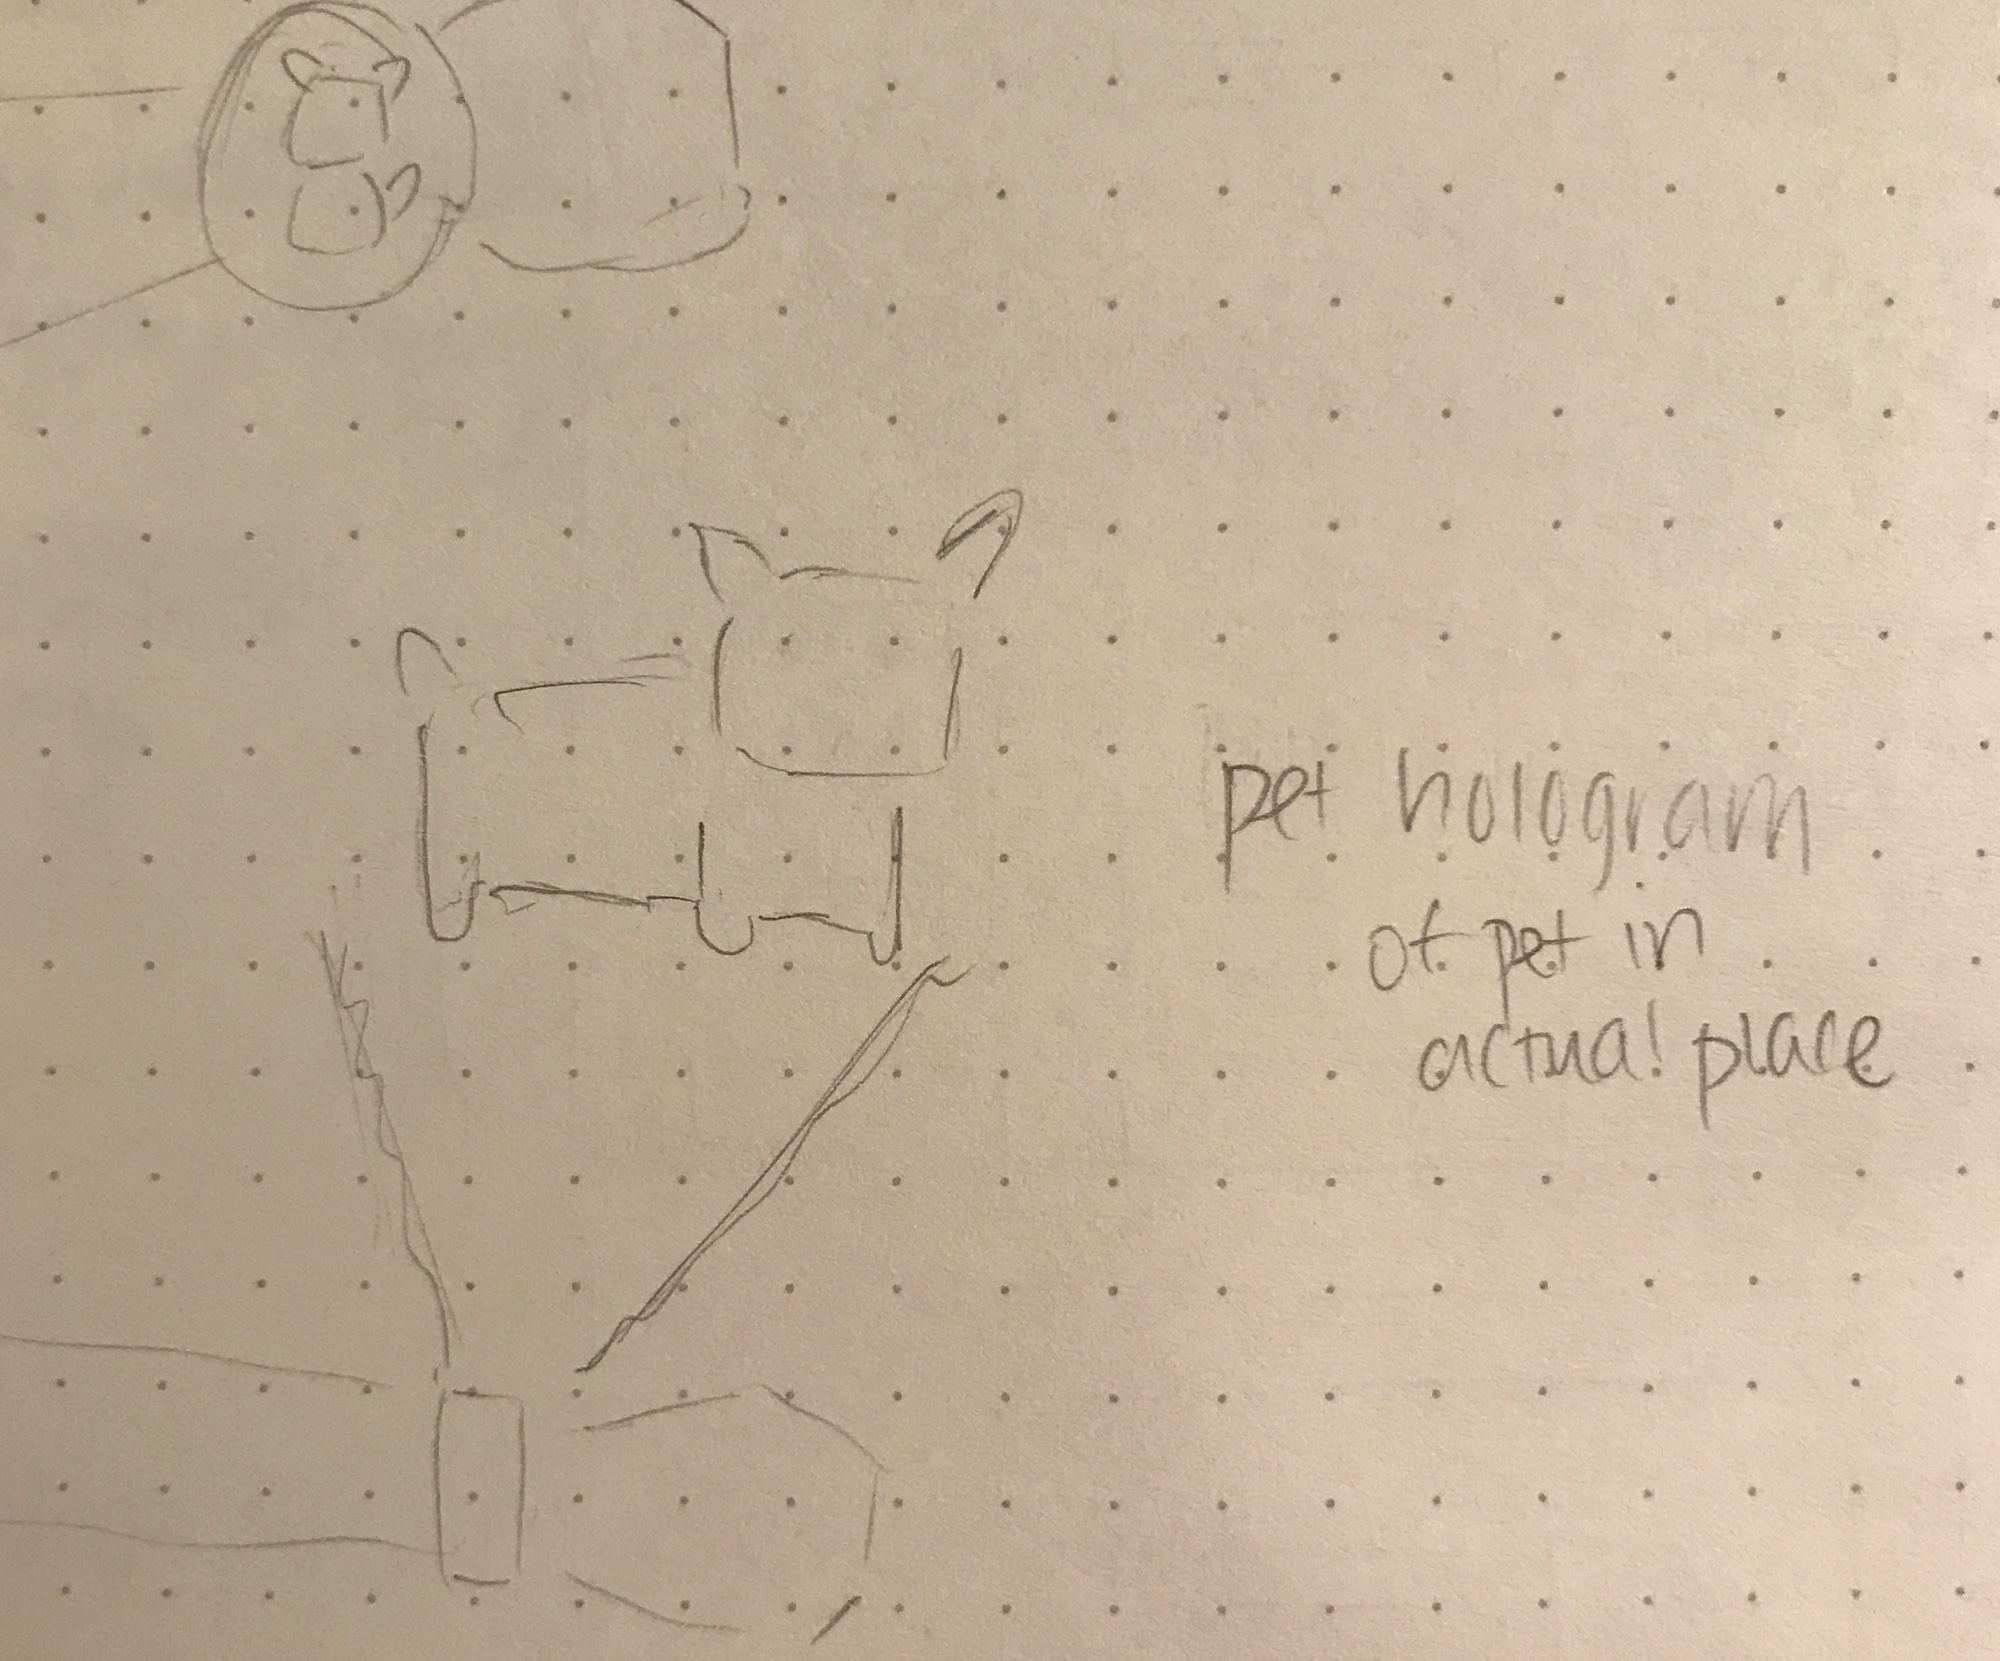 pet hologram
of pet in
actual place